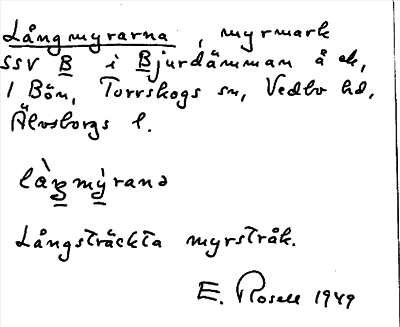 Långmyrarna, myrmark
SSV B i Bjurdämman å ek,
1 Bön, Torrskogs sn, Vedbo hd,
Älvsborgs l.
làŋmỳranə
Långsträckta myrstråk.
E. Rosell 1949